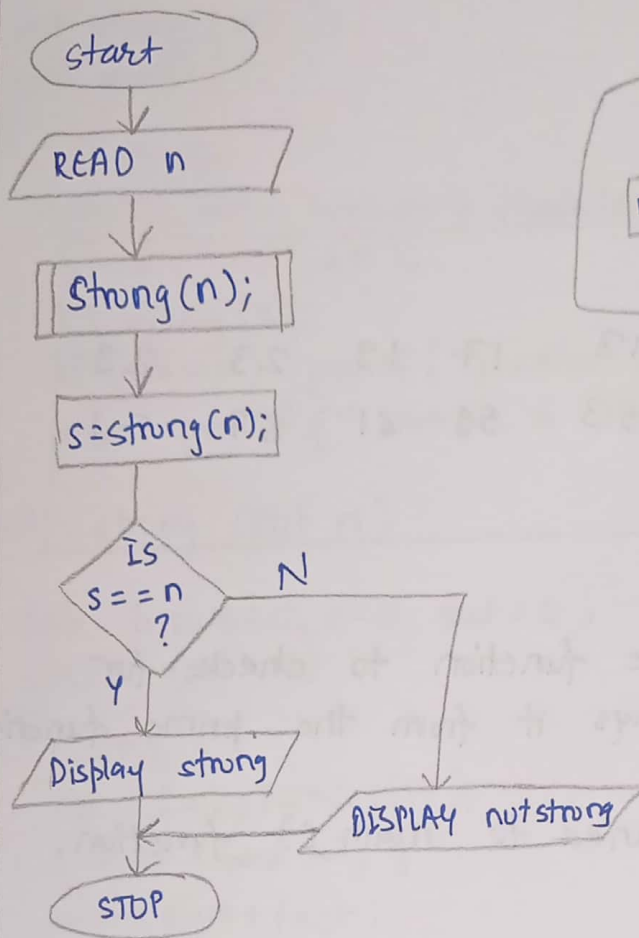 start
READ n
Strong(n);
s=strong(n);
Is
s==n
?
N
Y
Display strong
DISPLAY notstrong
STOP